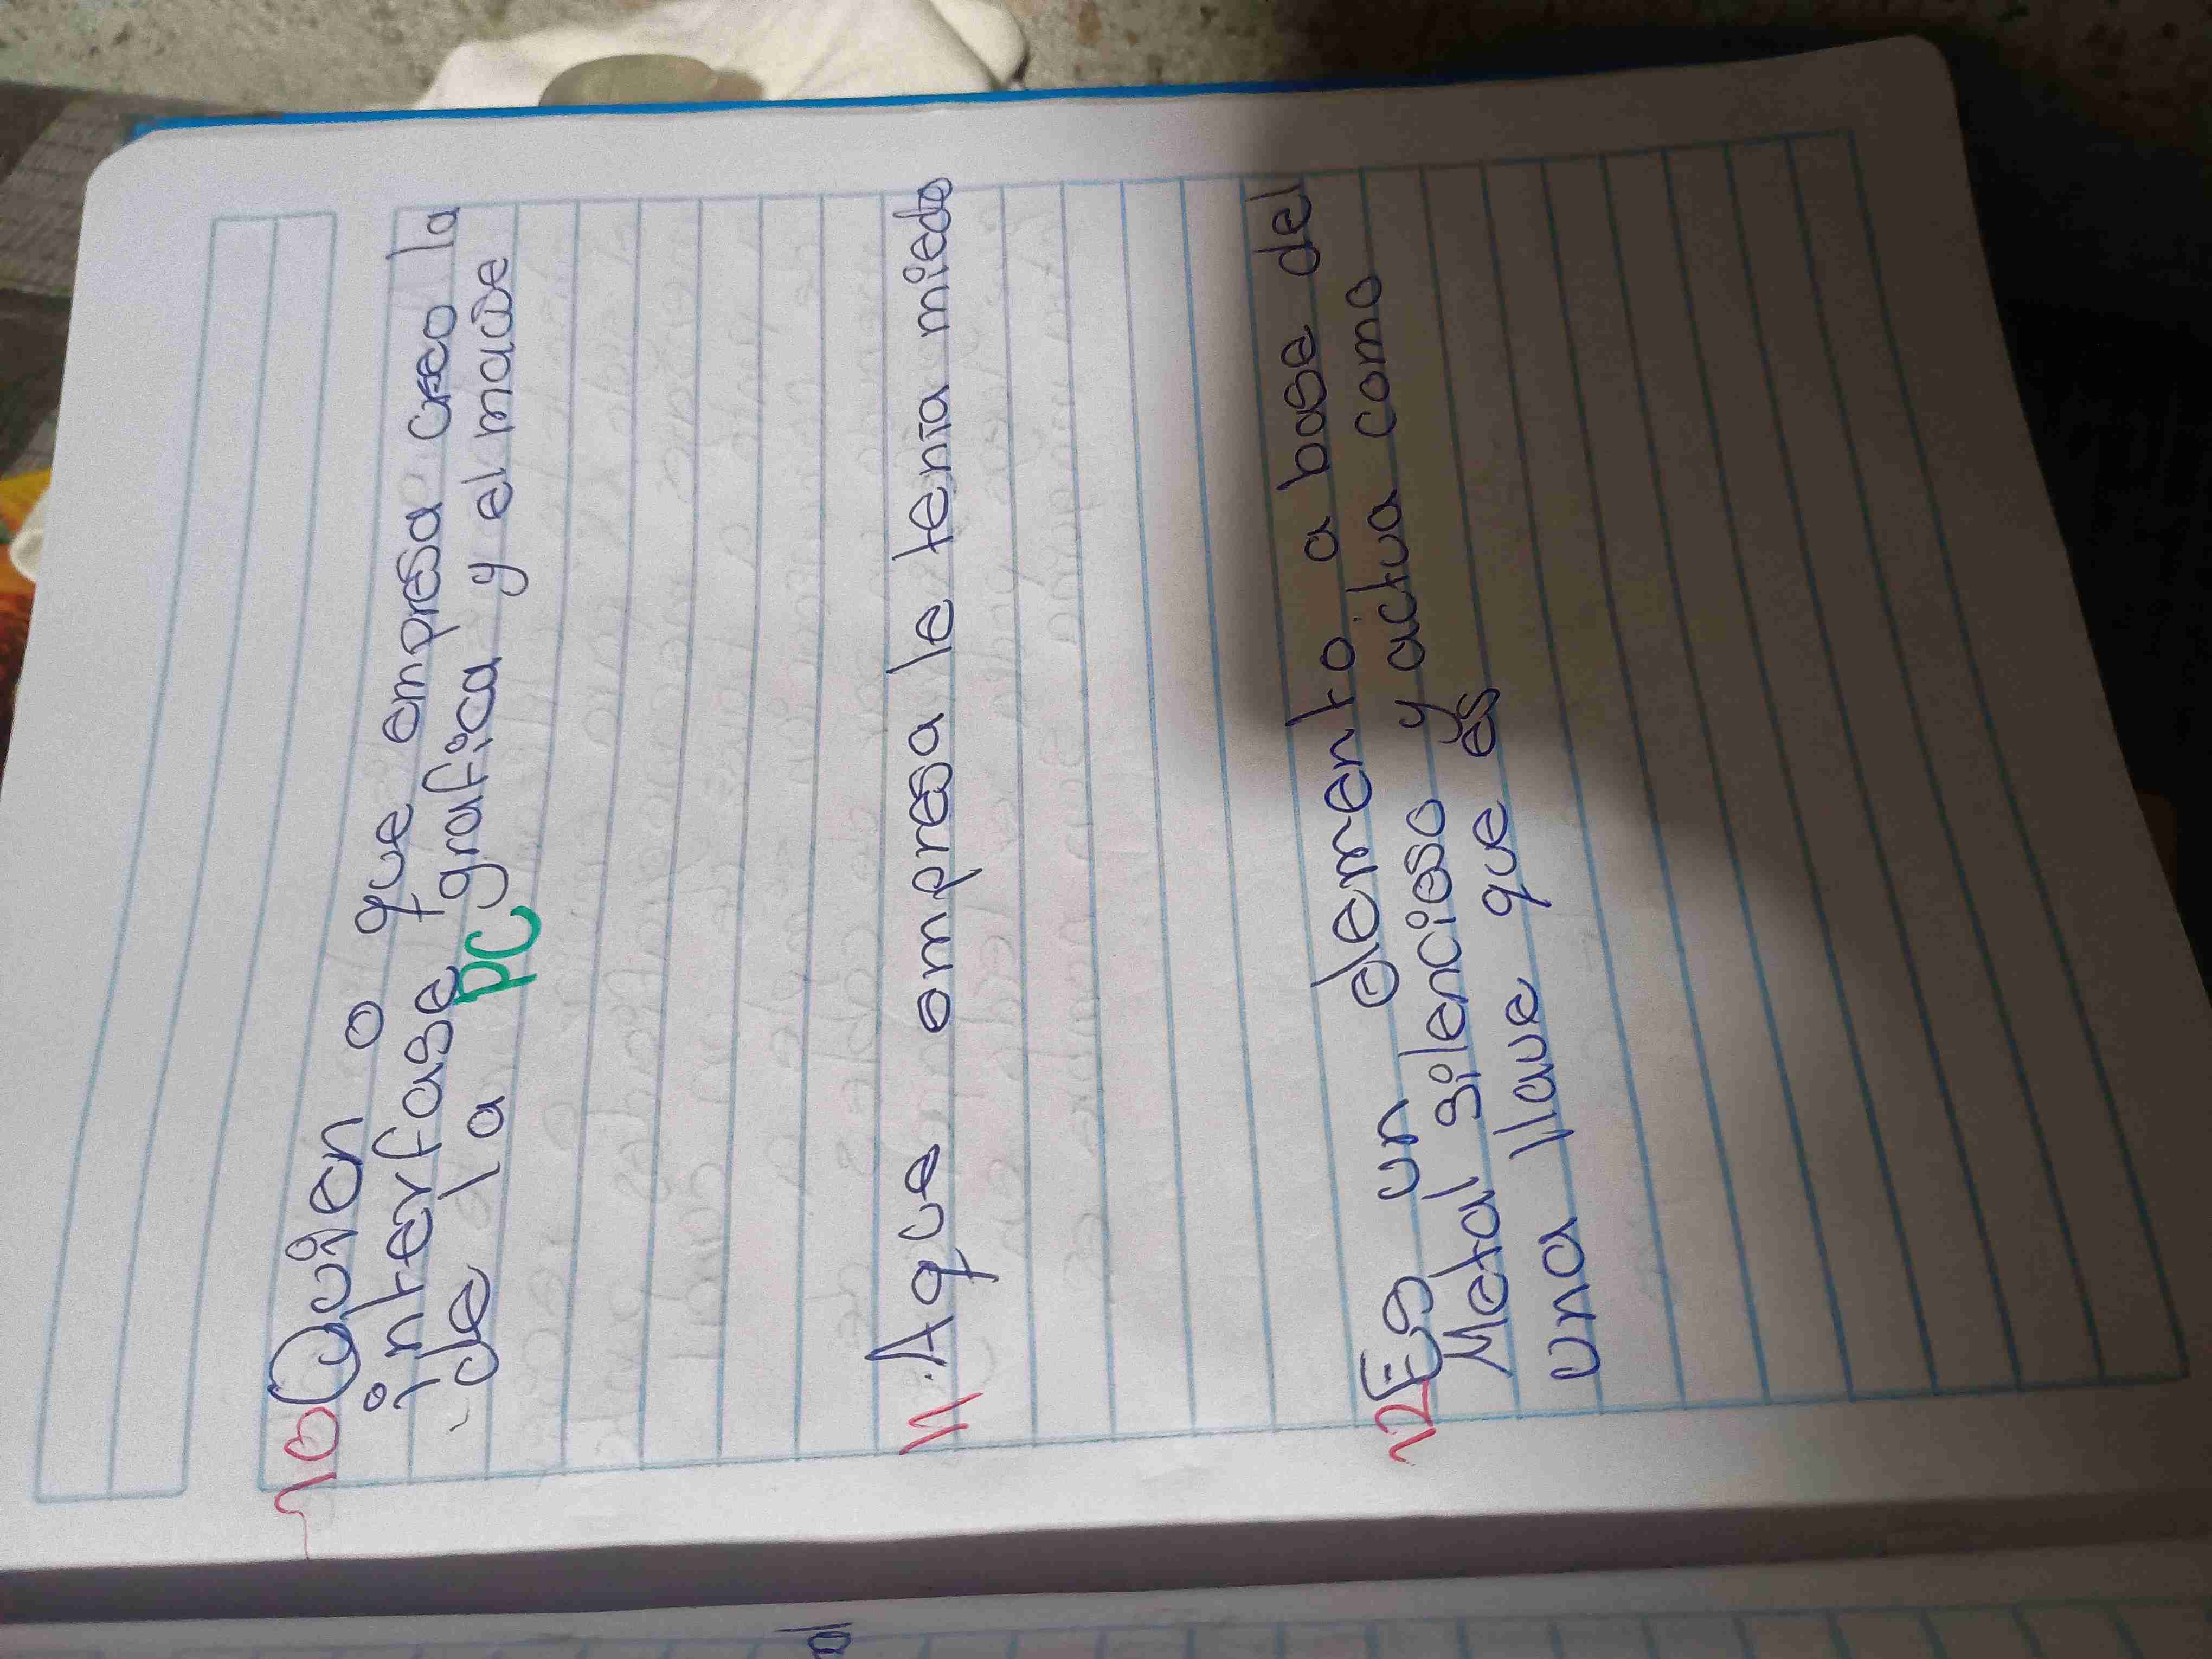 10 Quien o que empresa creo la
interfase grafica y el mause
de la PC
11. A que empresa le tenia miedo
12 Es un elemento a base del
Metal silencioso y actua como
una llave que es